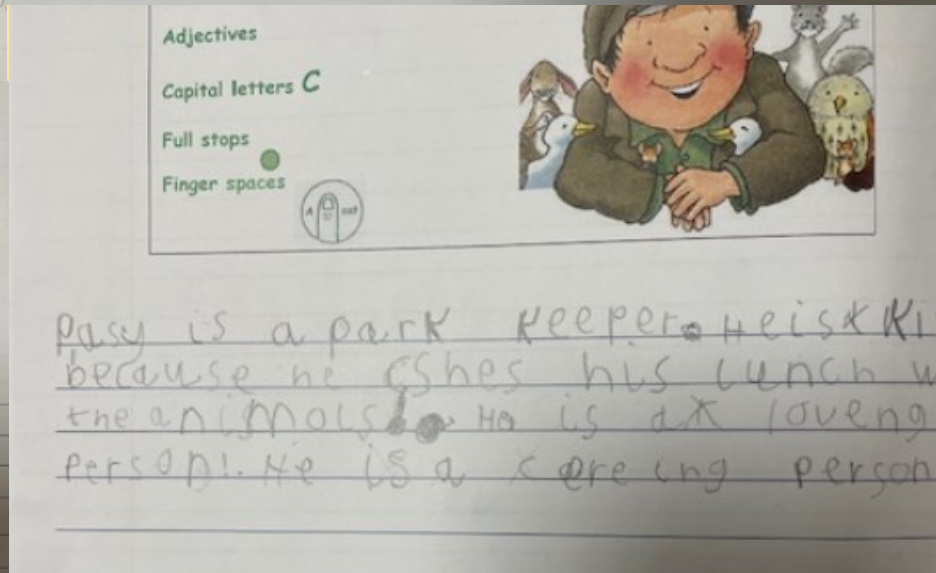 Adjectives
Capital letters C
Full stops
Finger spaces
A cat
Pasy is a park Keeper. He is Ki
because he Cshes his lunch w
the animals. He is a loveng
person!. He is a careing person